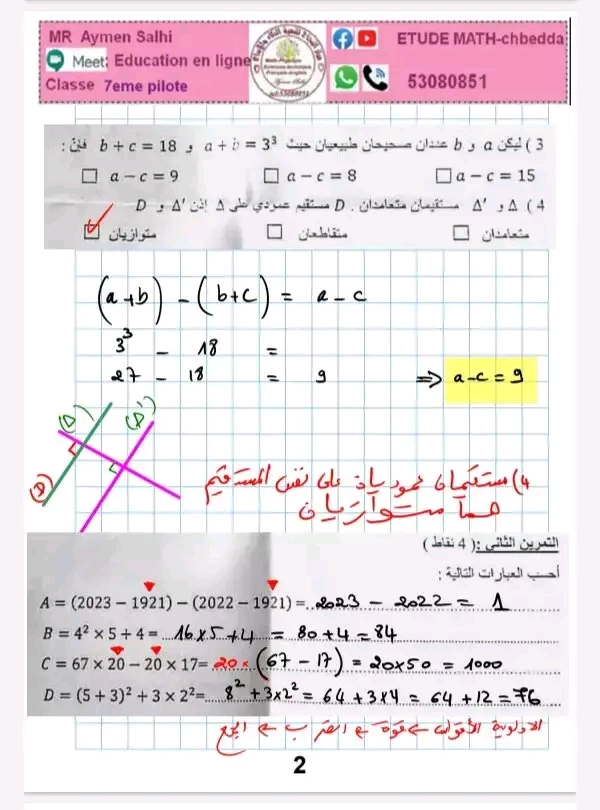 MR Aymen Salhi
Meet: Education en ligne
Classe 7eme pilote
ETUDE MATH-chbedda
53080851
3 ) ليكن a و b عددان صحيحان طبيعيان حيث a + b = 3³ و b + c = 18 فإنّ :
☐ a − c = 9 ☐ a − c = 8 ☐ a − c = 15
4 ) Δ و Δ' مستقيمان متعامدان . D مستقيم عمودي على Δ إذن Δ' و D
متوازيان متقاطعان متعامدان
(a+b) − (b+c) = a − c
3³ − 18 =
27 − 18 = 9 ⇒ a−c = 9
(Δ) (Δ')
(D)
4) مستقيمان عموديان على نفس المستقيم
هما متوازيان
التمرين الثاني :( 4 نقاط )
أحسب العبارات التالية :
A = (2023 − 1921) − (2022 − 1921) = 2023 − 2022 = 1
B = 4² × 5 + 4 = 16×5+4 = 80+4 = 84
C = 67 × 20 − 20 × 17= 20 × (67 − 17) = 20×50 = 1000
D = (5 + 3)² + 3 × 2²= 8² + 3×2² = 64 + 3×4 = 64 + 12 = 76
الاولوية الأقواس ← قوة ← الضرب ← الجمع
2